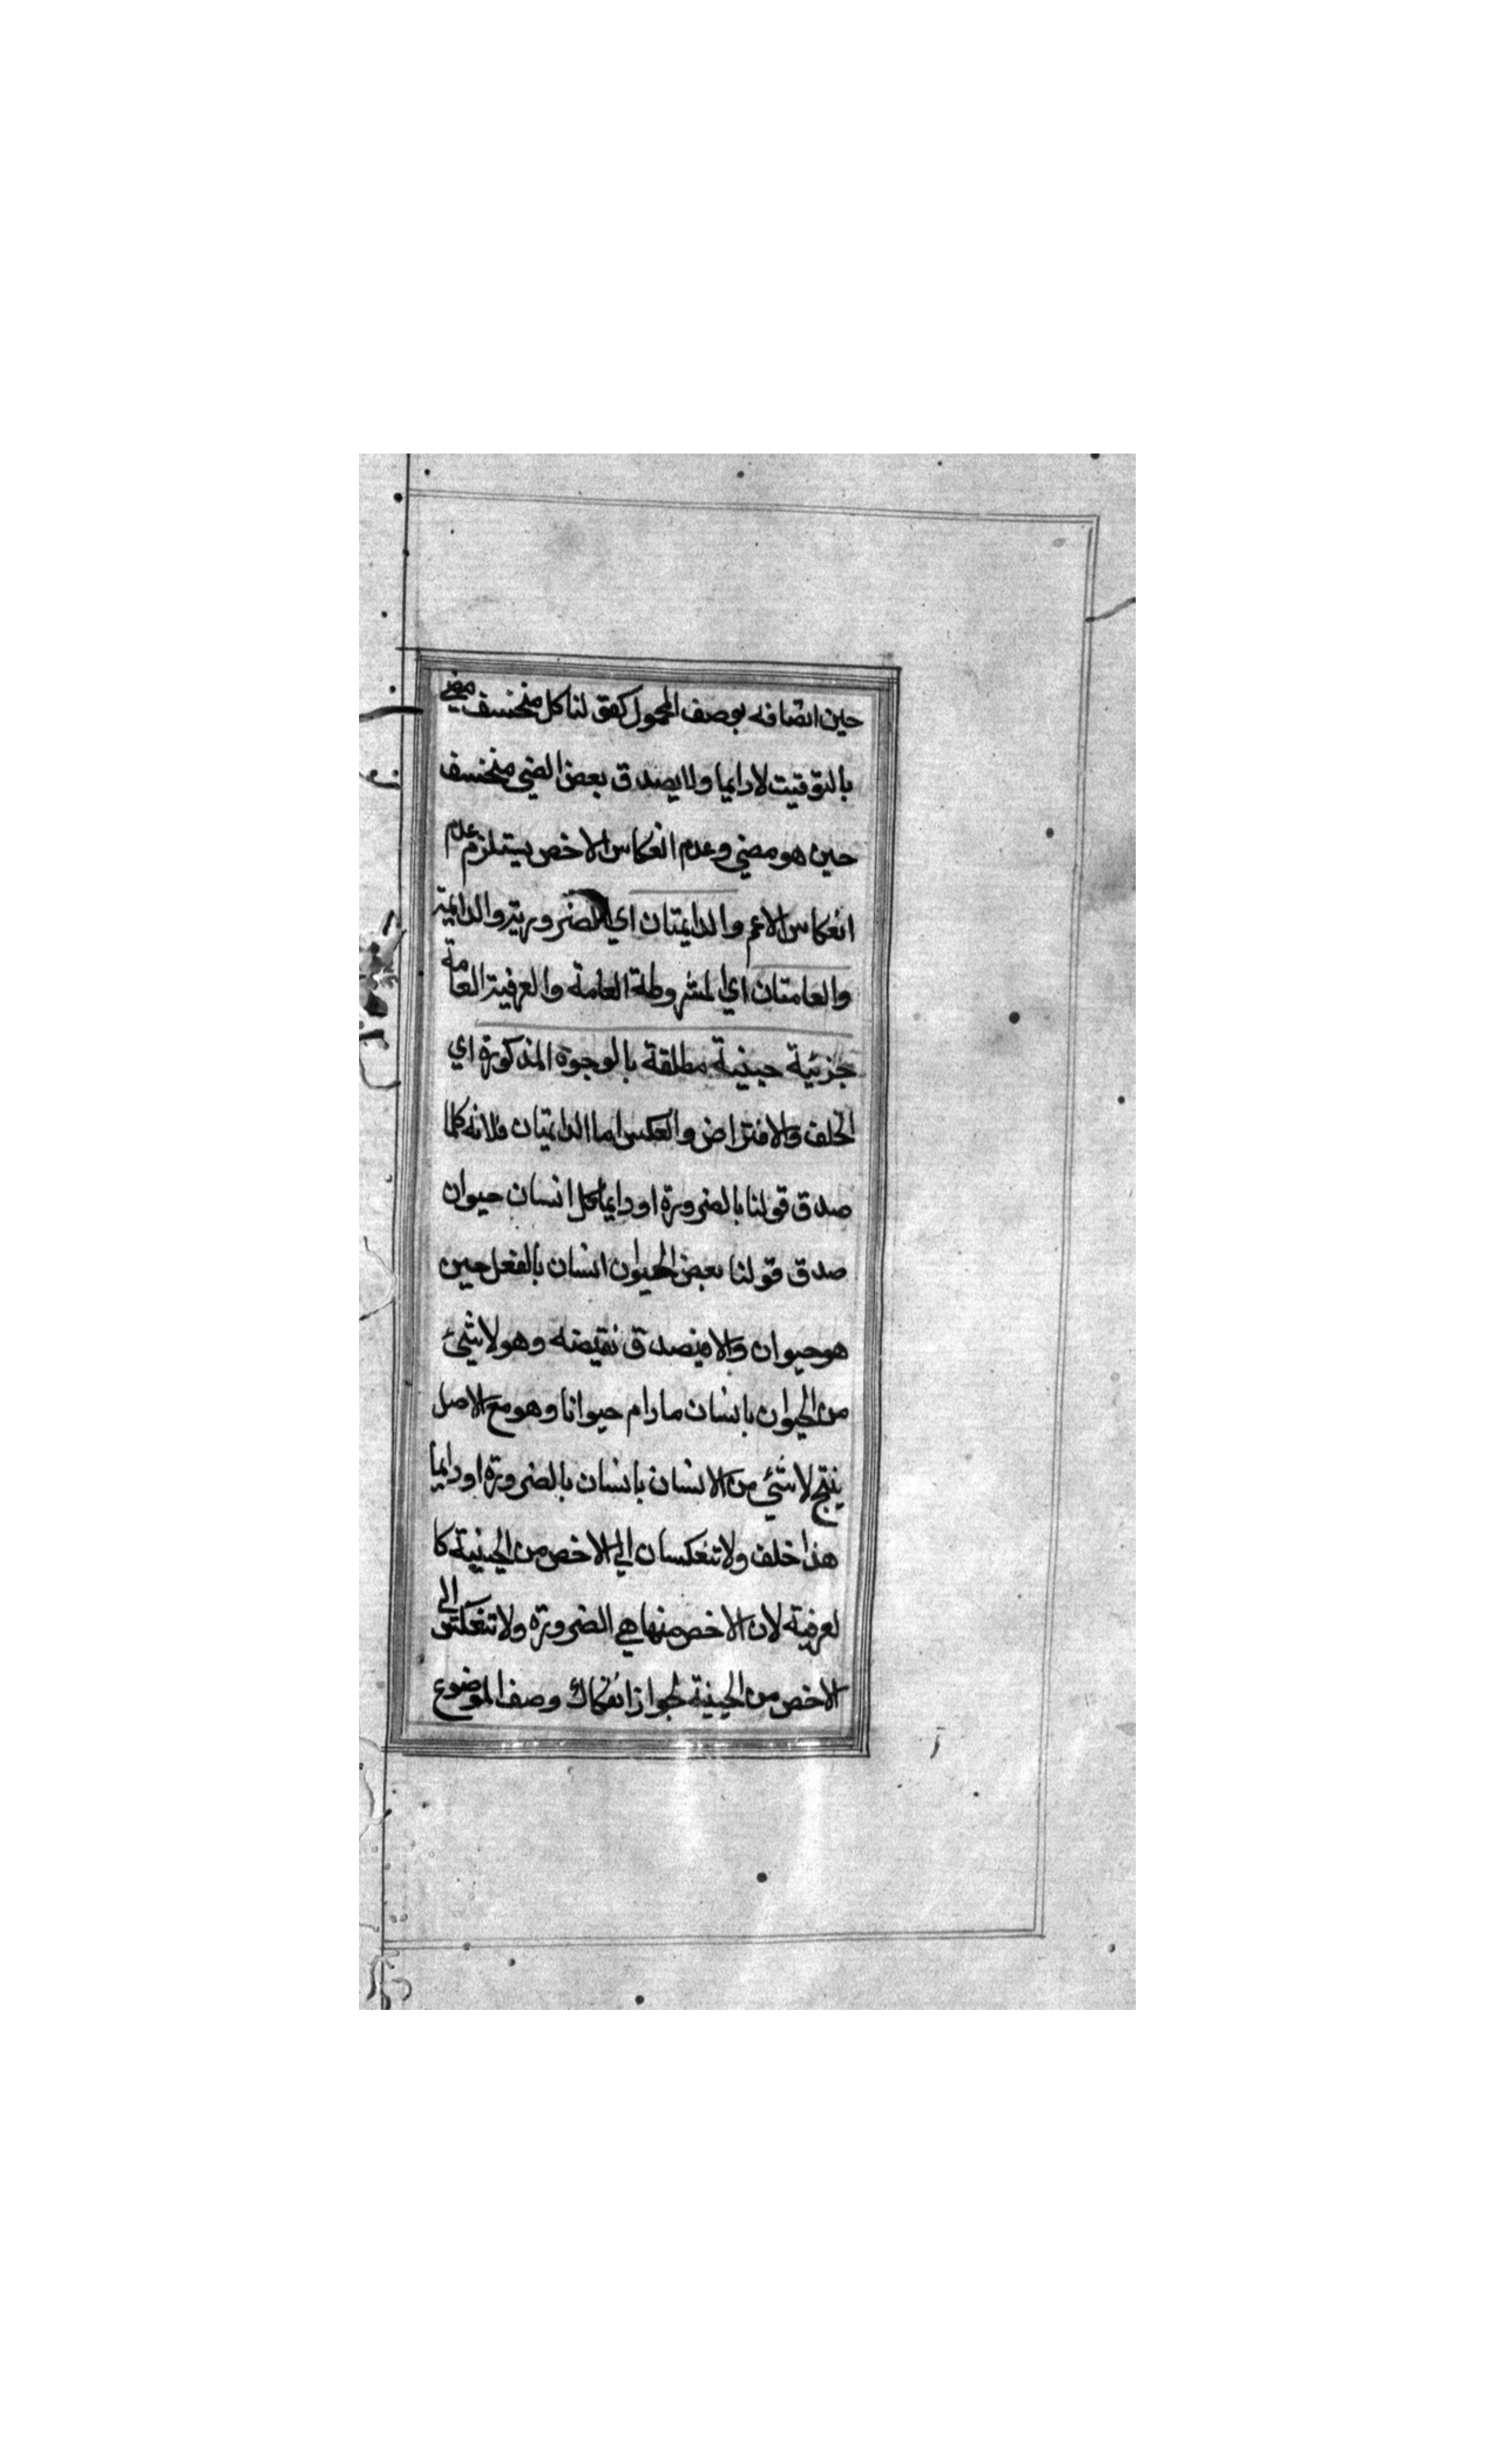 حين اتصافه بوصف المحمول كقولنا كل منخسف مضي
بالتوقيت لادايما ولا يصدق بعض المضي منخسف
حين هو مضي وعدم انعكاس الاخص يستلزم عدم
انعكاس الاعم والدايمتان اي الضرورية والدايمة
والعامتان اي المشروطة العامة والعرفية العامة
جزئية حينية مطلقة بالوجوه المذكورة اي
الخلف والافتراض والعكس اما الدايمتان فلانه كلما
صدق قولنا بالضرورة او دايما كل انسان حيوان
صدق قولنا بعض الحيوان انسان بالفعل حين
هو حيوان والا فيصدق نقيضه وهو لا شئ
من الحيوان بانسان مادام حيوانا وهو مع الاصل
ينتج لا شئ من الانسان بانسان بالضرورة او دايما
هذا خلف ولا تنعكسان الي الاخص من الحينية كا
لعرفية لان الاخص منها هي الضرورة ولا تنعكس الي
الاخص من الحينية لجواز انفكاك وصف الموضوع